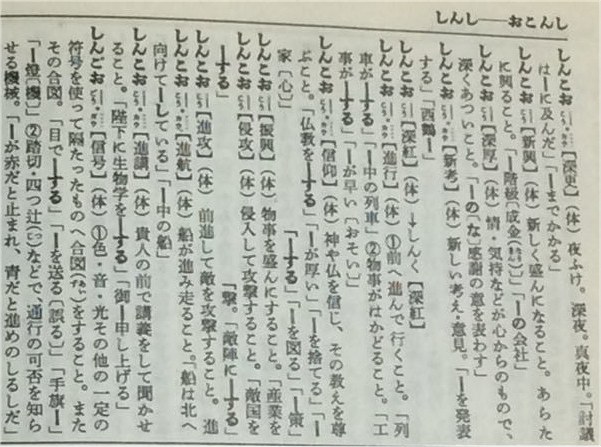 しんこお――しんし
しんこお【深更】(体) 夜ふけ。深夜。真夜中。「討議
は━に及んだ」「━までかかる」
しんこお【新興】(体) 新しく盛んになること。あらた
に興ること。「━階級〔成金〕」「━の会社」
しんこお【深厚】(体) 情・気持などが心からのもので、
深くあついこと。「━の〔な〕感謝の意を表わす」
しんこお【新考】(体) 新しい考え・意見。「━を発表
する」「西鶴━」
しんこお【深紅】(体) →しんく【深紅】
しんこお【進行】(体) ①前へ進んで行くこと。「列
車が━する」「━中の列車」②物事がはかどること。「工
事が━する」「━が早い〔おそい〕」
しんこお【信仰】(体) 神や仏を信じ、その教えを尊
ぶこと。「仏教を━する」「━が厚い」「━を捨てる」「━
家〔心〕」 「━する」「━を図る」「━策」
しんこお【振興】(体) 物事を盛んにすること。「産業を
しんこお【侵攻】(体) 侵入して攻撃すること。「敵国を
━する」 撃。「敵陣に━する」
しんこお【進攻】(体) 前進して敵を攻撃すること。進
しんこお【進航】(体) 船が進み走ること。「船は北へ
向けて━している」「━中の船」
しんこお【進講】(体) 貴人の前で講義をして聞かせ
ること。「陛下に生物学を━する」「御━申し上げる」
しんごお【信号】(体) ①色・音・光その他の一定の
符号を使って隔たったものへ合図をすること。また
その合図。「目で━する」「━を送る〔誤る〕」「手旗━」
「━燈〔機〕」②踏切・四つ辻などで、通行の可否を知ら
せる機械。「━が赤だと止まれ、青だと進めのしるしだ」